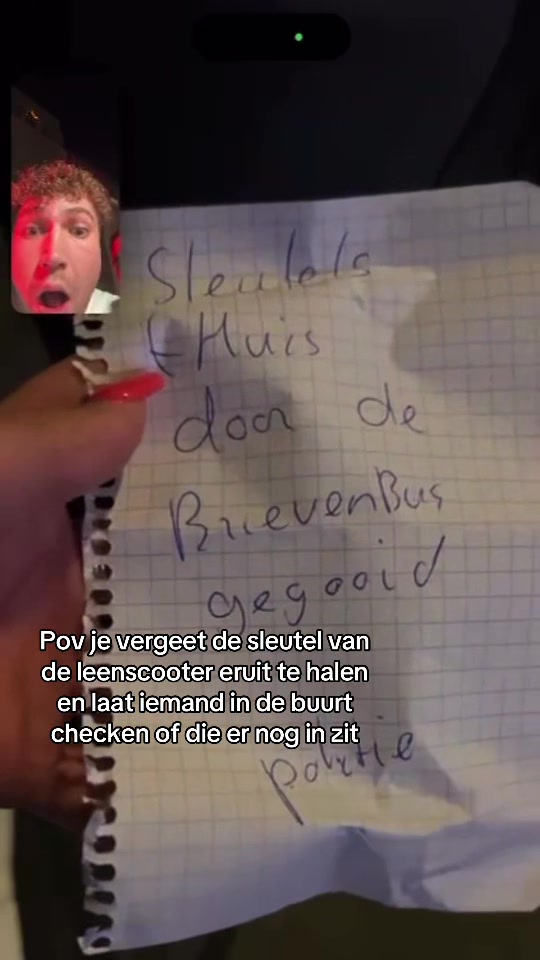 Sleutels
t Huis
door de
BrievenBus
gegooid
Pov je vergeet de sleutel van
de leenscooter eruit te halen
en laat iemand in de buurt
checken of die er nog in zit
politie